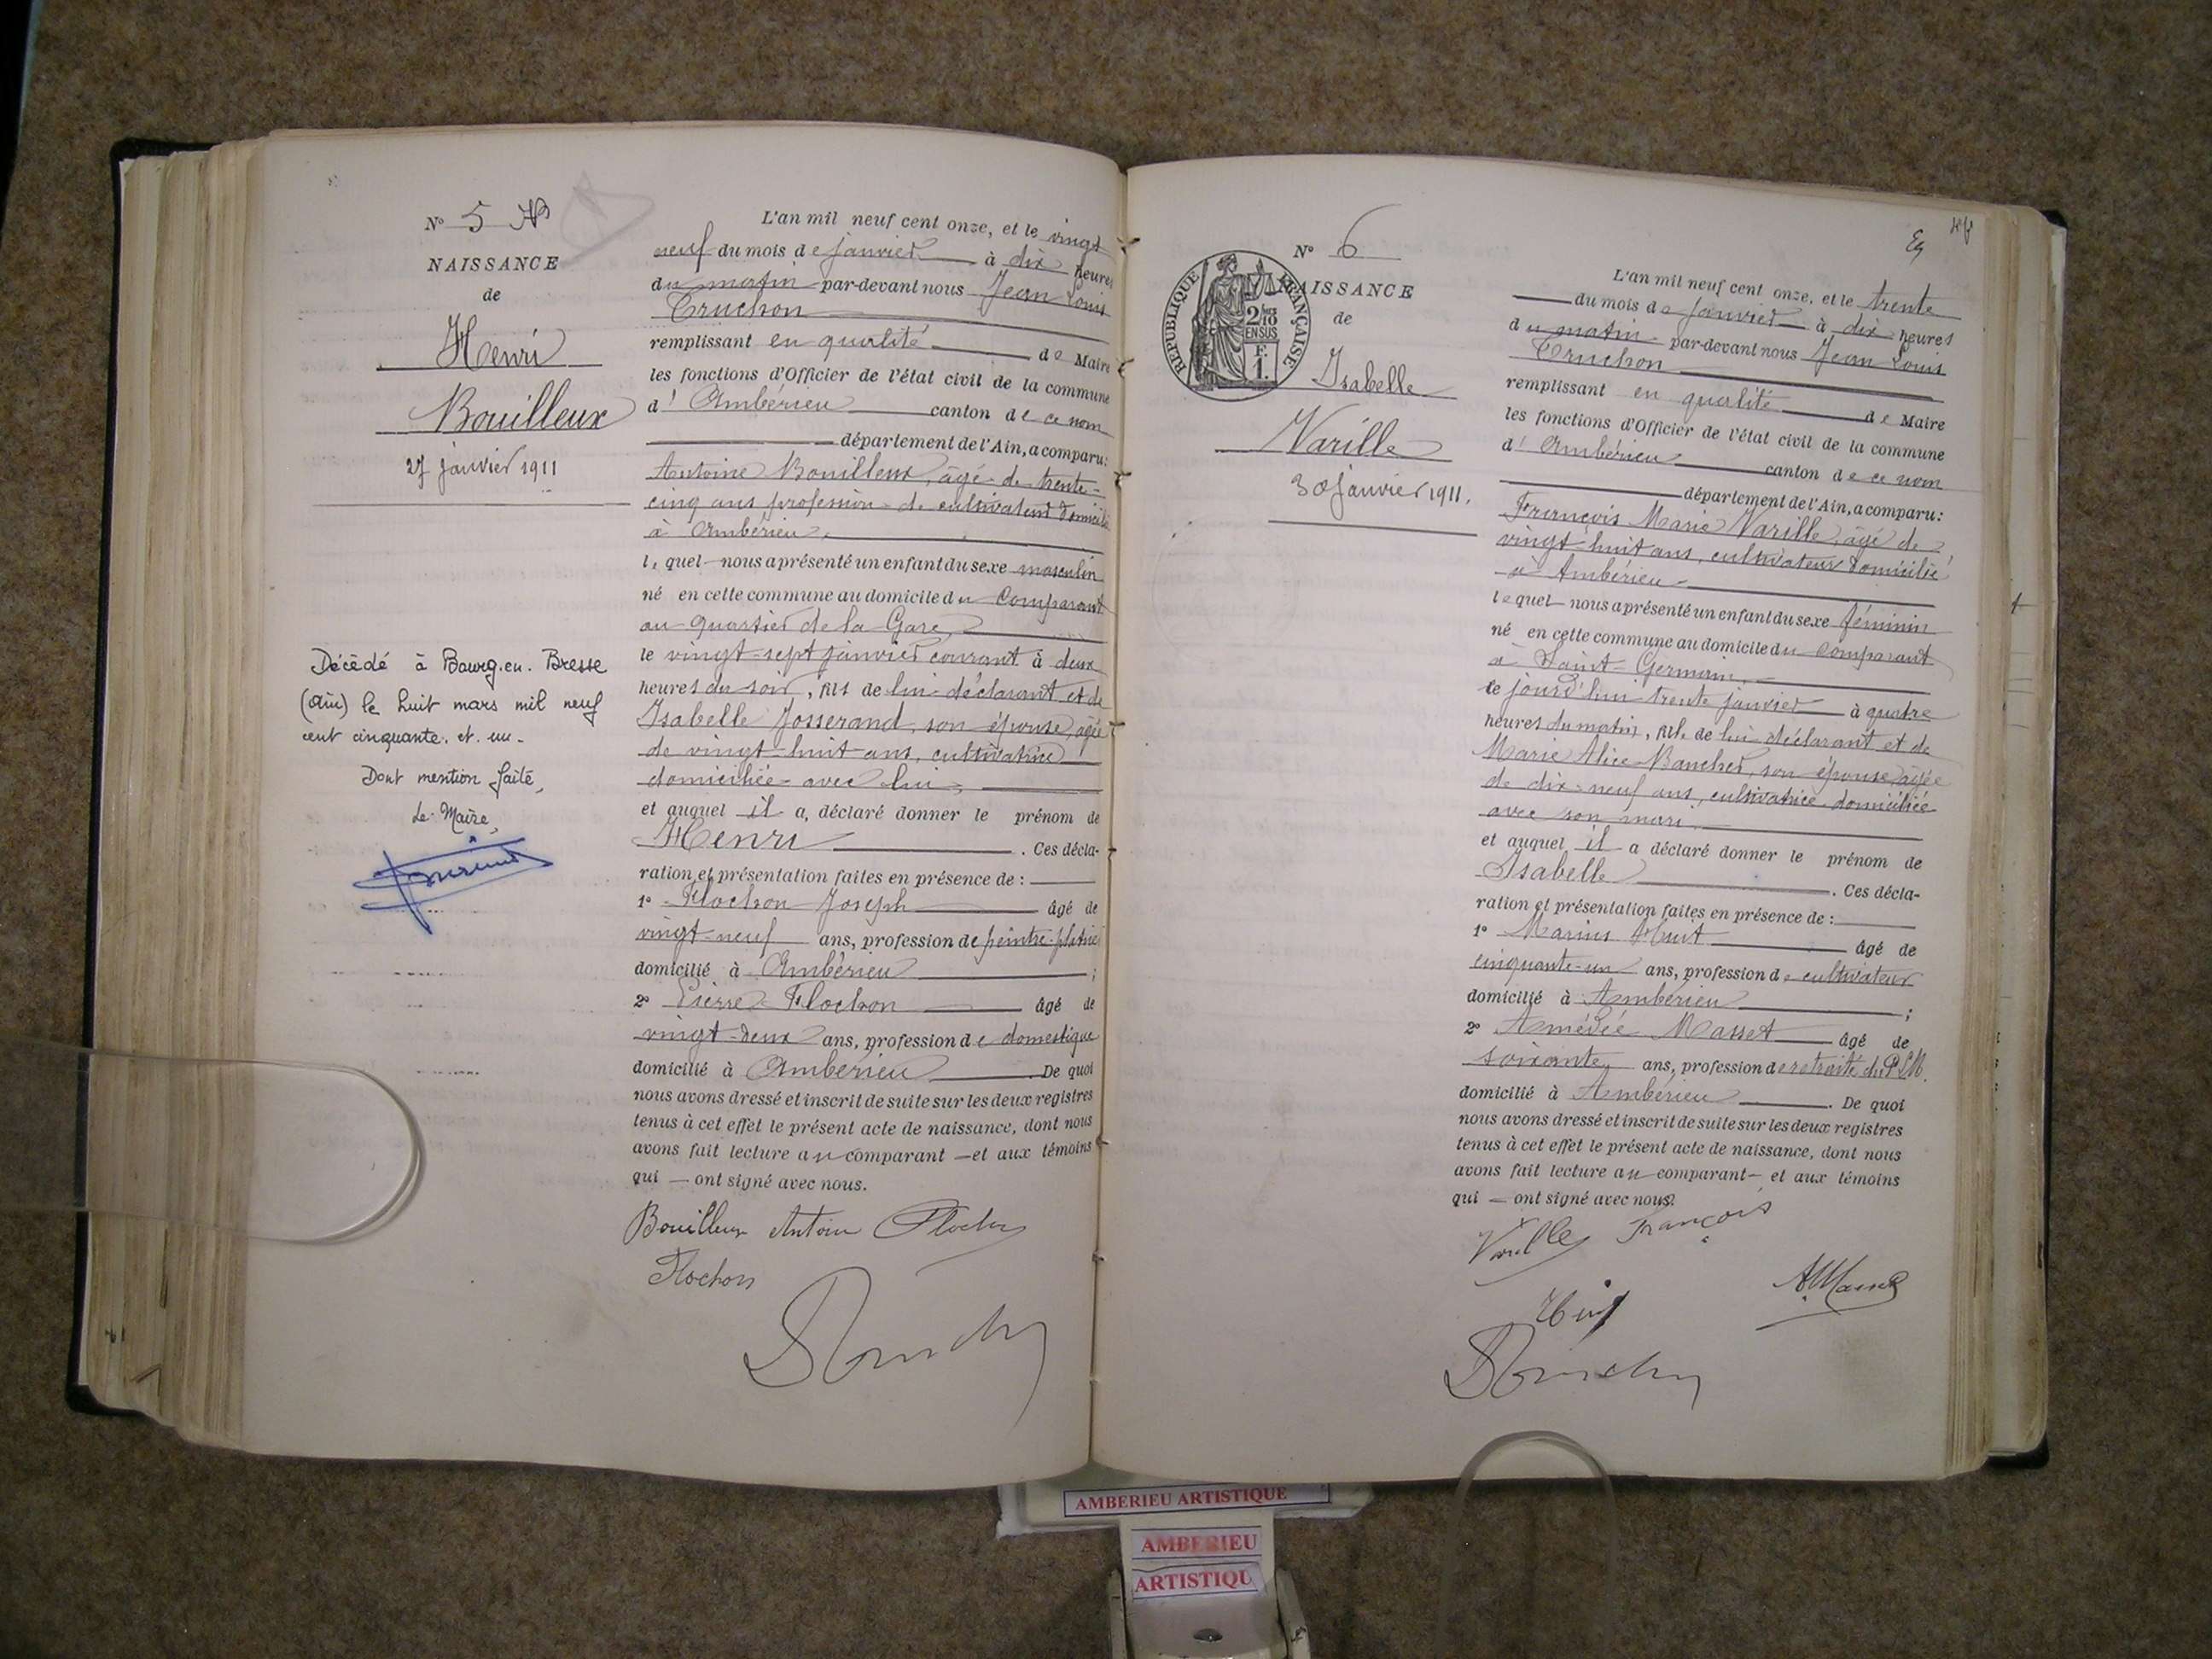 N° 5
NAISSANCE
de
Henri
Bouilleux
27 janvier 1911
Décédé à Bourg.en.Bresse
(Ain) le huit mars mil neuf
cent cinquante.et.un.
Dont mention faite,
Le Maire,
L'an mil neuf cent onze, et le vingt
neuf du mois de janvier à dix heures
du matin par-devant nous Jean Louis
Truchon
remplissant en qualité de Maire
les fonctions d'Officier de l'état civil de la commune
d'Ambérieu canton de ce nom
département de l'Ain, a comparu:
Antoine Bouilleux, âgé de trente-
cinq ans profession de cultivateur domicilié
à Ambérieu,
lequel nous a présenté un enfant du sexe masculin
né en cette commune au domicile du comparant
au quartier de la Gare,
le vingt-sept janvier courant à deux
heures du soir, fils de lui déclarant et de
Isabelle Josserand, son épouse, âgée
de vingt-huit ans, cultivatrice
domiciliée avec lui,
et auquel il a, déclaré donner le prénom de
Henri . Ces décla-
ration et présentation faites en présence de :
1° Flochon Joseph âgé de
vingt-neuf ans, profession de peintre-plâtrier
domicilié à Ambérieu ;
2° Pierre Flochon âgé de
vingt-deux ans, profession de domestique
domicilié à Ambérieu . De quoi
nous avons dressé et inscrit de suite sur les deux registres
tenus à cet effet le présent acte de naissance, dont nous
avons fait lecture au comparant et aux témoins
qui ont signé avec nous.
Bouilleux Antoine Flochon
Flochon
N° 6
NAISSANCE
de
Isabelle
Varille
30 janvier 1911.
REPUBLIQUE FRANÇAISE
2/10
EN SUS
F.
1.
L'an mil neuf cent onze, et le trente
du mois de janvier à dix heures
du matin par-devant nous Jean Louis
Truchon
remplissant en qualité de Maire
les fonctions d'Officier de l'état civil de la commune
d'Ambérieu canton de ce nom
département de l'Ain, a comparu:
François Marie Varille, âgé de
vingt-huit ans, cultivateur domicilié
à Ambérieu
lequel nous a présenté un enfant du sexe féminin
né en cette commune au domicile du comparant
à Saint-Germain,
le jourd'hui trente janvier à quatre
heures du matin, fille de lui déclarant et de
Marie Alice Bancher, son épouse, âgée
de dix-neuf ans, cultivatrice domiciliée
avec son mari
et auquel il a déclaré donner le prénom de
Isabelle . Ces décla-
ration et présentation faites en présence de :
1° Marius Huit âgé de
cinquante-un ans, profession de cultivateur
domicilié à Ambérieu ;
2° Amédée Masset âgé de
soixante ans, profession de retraité du P.L.M.
domicilié à Ambérieu . De quoi
nous avons dressé et inscrit de suite sur les deux registres
tenus à cet effet le présent acte de naissance, dont nous
avons fait lecture au comparant et aux témoins
qui ont signé avec nous.
Varille François
AMBERIEU ARTISTIQUE
AMBERIEU
ARTISTIQU